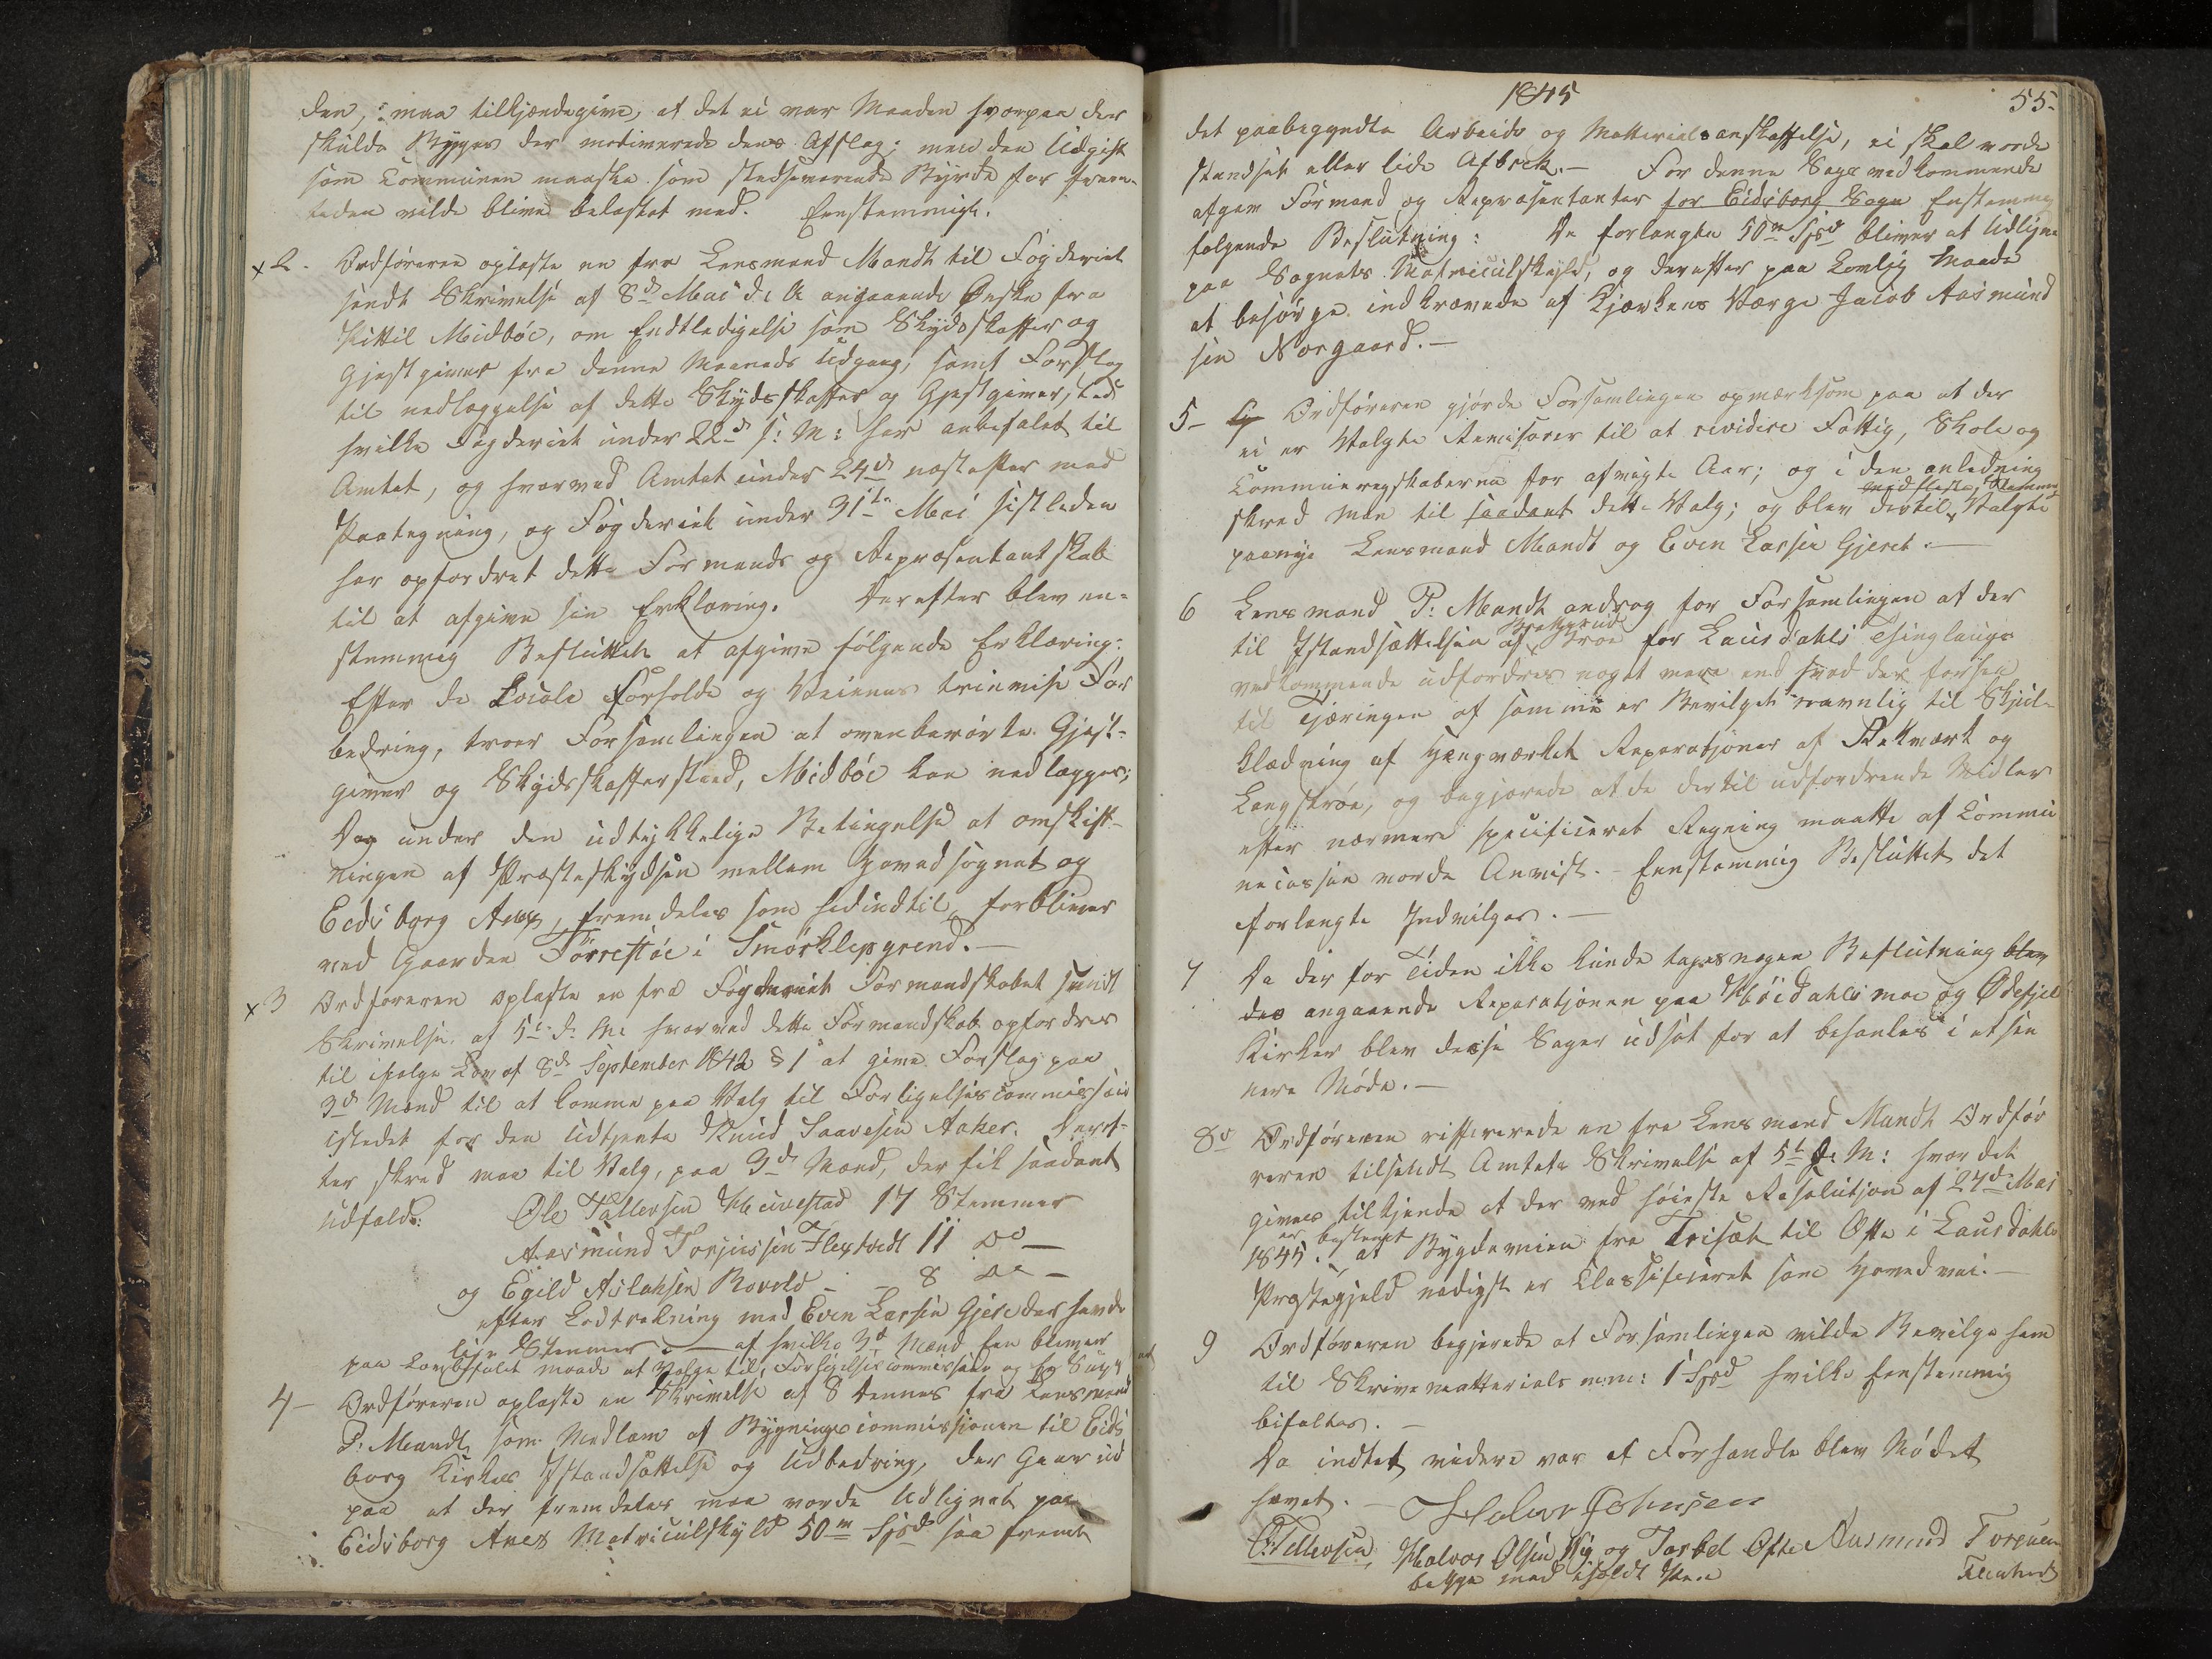 den, maa tilkjendegive, at det ei var Maaden hvorpaa der
skulde Bygges der motiverede dens Afslag; men den Udgift
som Communen maaske som stedsevarende Byrde for frem-
tiden vilde blive belastet med. Eenstemmigt.
x 2. Ordføreren oplæste en fra Lensmand Mandt til Fogderiet
sendt Skrivelse af 8de Mai d. A angaaende Ønske fra
Kittil Midbøe, om Endtledigelse som Skydsskaffer og
Gjestgiver fra denne Maaneds Udgang, samt Forslag
til nedlæggelse af dette Skydsskaffer og Gjestgiversted
hvilke Fogderiet under 22de s: M: har anbefalet til
Amtet, og hvorved Amtet under 24de næstefter med
Paategning, og Fogderiet under 31te Mai sistleden
har opfordret dette Formands og Repræsentantskab
til at afgive sin Erklæring. Derefter blev en-
stemmig Besluttet at afgive følgende Erklæring:
Efter de Locale Forholde og Veienes trinvise For
bedring, troer Forsamlingen at ovenberørte Gjest-
giver og Skydsskaffersted, Midbøe kan nedlægges;
Dog under den udtrykkelige Betingelse at omskift-
ningen af Præsteskydsen mellem Hovedsognet og
Eidsborg Anex, fremdeles som hidindtil, forbliver
ved Gaarden Førrestøe i Smørklepgrend.—
x 3 Ordføreren oplæste en fra Fogderiet Formandskabet sendt
Skrivelse af 5te d. M: hvorved dette Formandskab opfordres
til ifølge Lov af 8de September 1842 § 1 at give Forslag paa
3de Mænd til at komme paa Valg til Forligelsescommissair
istedet for den Udtjente Knud Saavesen Aaker. Deref-
ter skred man til Valg, paa 3de Mænd, der fik saadant
Udfald: Ole Tallevsen 17 Stemmer
Aasmund Torjussen 11 do—
og Egild Aslaksen Rovold — 8 do—
efter Lodtrekning med Even Larsen Gjere der havde
lige Stemmer.— af hvilke 3de Mænd een bliver
paa Lovbefalet maade at Vælge til Forligelsescommissair
4— Ordføreren oplæste en Skrivelse af 8 dennes fra Lensmand
P: Mandt, som Medlem af Bygningscommissionen til Eids
borg Kirkes Istandsættelse og Udbedring, der Gaar ud
paa at der fremdeles maa vorde Udlignet paa
Eidsborg Anex Matriculskyld 50 m Spd saa fremt
1845
55.
det paabegyndte Arbeide og Matterialsanskaffelse, ei skal vorde
standset eller lide Afbrek.— For denne Sags vedkommende
afgav Formænd og Repræsentanter for Eidsborg Sogn Enstemmig
følgende Beslutning: De forlangte 50 m Spd bliver at Udligne
paa Sognets Matriculskyld, og derefter paa Lovlig Maade
at besørge indkrævede af Kjærkens Værge Jacob Aasmund
sen Norgaard.—
5— Ordføreren gjørde Forsamlingen opmærksom paa at der
ei er Valgte Revisorer til at revidere Fattig, Skole og
Communeregskaberne for afvigte Aar; og i den anledning
skred man til saadant dette Valg; og blev dertil med fleste Stemmer Valgte
paanye Lensmand Mandt og Even Larsen Gjere.—
6 Lensmand P: Mandt androg for Forsamlingen at der
til Istandsættelsen af Broe for Laurdahls Thinglaugs
vedkommende udfordres noget mere end hvad der forhen
til Tjæringen af samme er Bevilget navnlig til Skjul-
klædning af Hengverket Reparasjoner af Rekverk og
Langstrøe, og begjærede at de dertil udfordrende Midler
efter nærmere specificeret Regning maatte af Commu
necassen vorde Anvist.— Eenstemmig Besluttet det
forlangte Indvilges.—
7 Da der for Tiden ikke kunde tages nogen Beslutning blev
des angaaende Reparasjonen paa Høidahlsmoe og Ødefjeld
Kirker blev desse Sager udsat for at behanles i et sen
nere Møde.—
8o Ordføreren refererede en fra Lensmand Mandt Ordfør
reren tilsendt Amtets Skrivelse af 5te d. M: hvor det
gives tilkjende at der ved høieste Resolution af 27de Mai
1845. er bestemt at Bygdeveien fra Trisæt til Ofte i Laurdahls
Præstegjeld nødigst er Classificeret som Hovedvei.—
9 Ordføreren begjerede at Forsamlingen vilde Bevilge ham
til Skrivematterials m.m: 1 Spd hvilke Eenstemmig
bifaltes.—
Da indtet videre var at Forhandle blev Mødet
hævet.— Halvor Johnsen
O Tallevsen, Halvor Olsen og Tarbel Ofte Aasmund Torjusen
begge med iholdt Pen